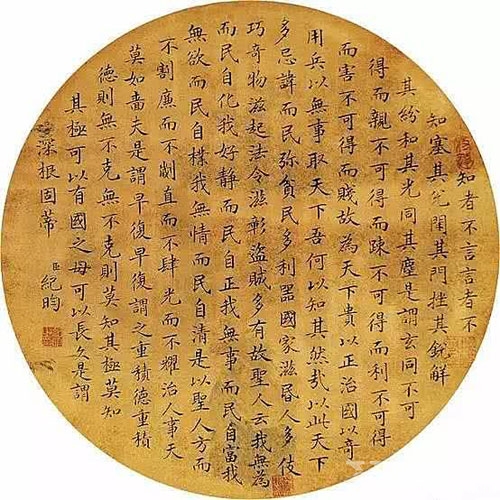 知者不言言者不
知塞其兌閉其門挫其銳解
其紛和其光同其塵是謂玄同不可
得而親不可得而踈不可得而利不可得
而害不可得而賤故為天下貴以正治國以奇
用兵以無事取天下吾何以知其然哉以此天下
多忌諱而民弥貧民多利器國家滋昏人多伎
巧奇物滋起法令滋彰盜賊多有故聖人云我無為
而民自化我好静而民自正我無事而民自富我
無欲而民自樸我無情而民自清是以聖人方而
不割廉而不劌直而不肆光而不耀治人事天
莫如嗇夫是謂早復早復謂之重積德重積
德則無不克無不克則莫知其極莫知
其極可以有國之母可以長久是謂
深根固蒂
臣紀昀